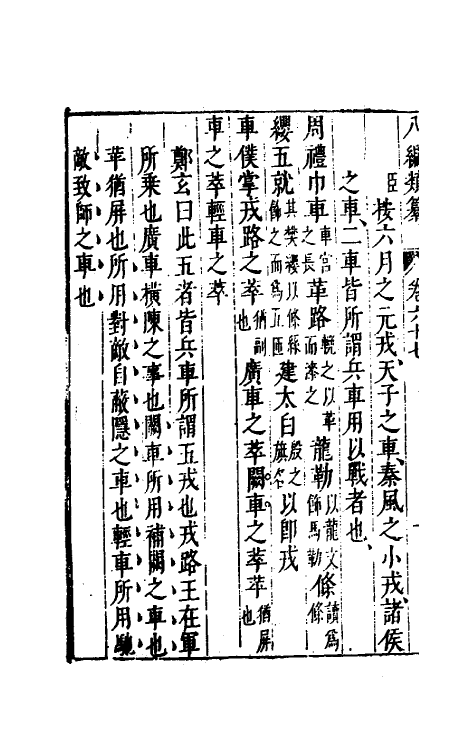 八編類纂　卷六十七
臣按六月之元戎、天子之車、秦風之小戎、諸侯
之車、二車皆所謂兵車用以戰者也、
周禮巾車車官之長革路輓之以革而漆之龍勒以龍文飾馬勒條讀為條
纓五就其樊纓以條絲飾之而為五匝建太白殷之旗名以即戎
車僕掌戎路之萃猶副也廣車之萃闕車之萃苹猶屏也
車之萃輕車之萃
鄭玄曰此五者皆兵車所謂五戎也戎路王在軍
所乘也廣車橫陳之車也闕車所用補闕之車也
苹猶屏也所用對敵自蔽隱之車也輕車所用馳
敵致師之車也